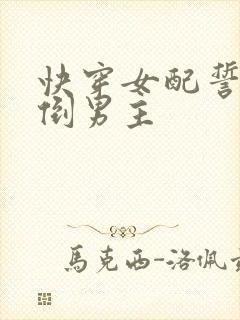 快穿女配誓
倒男主
馬克西-洛佩